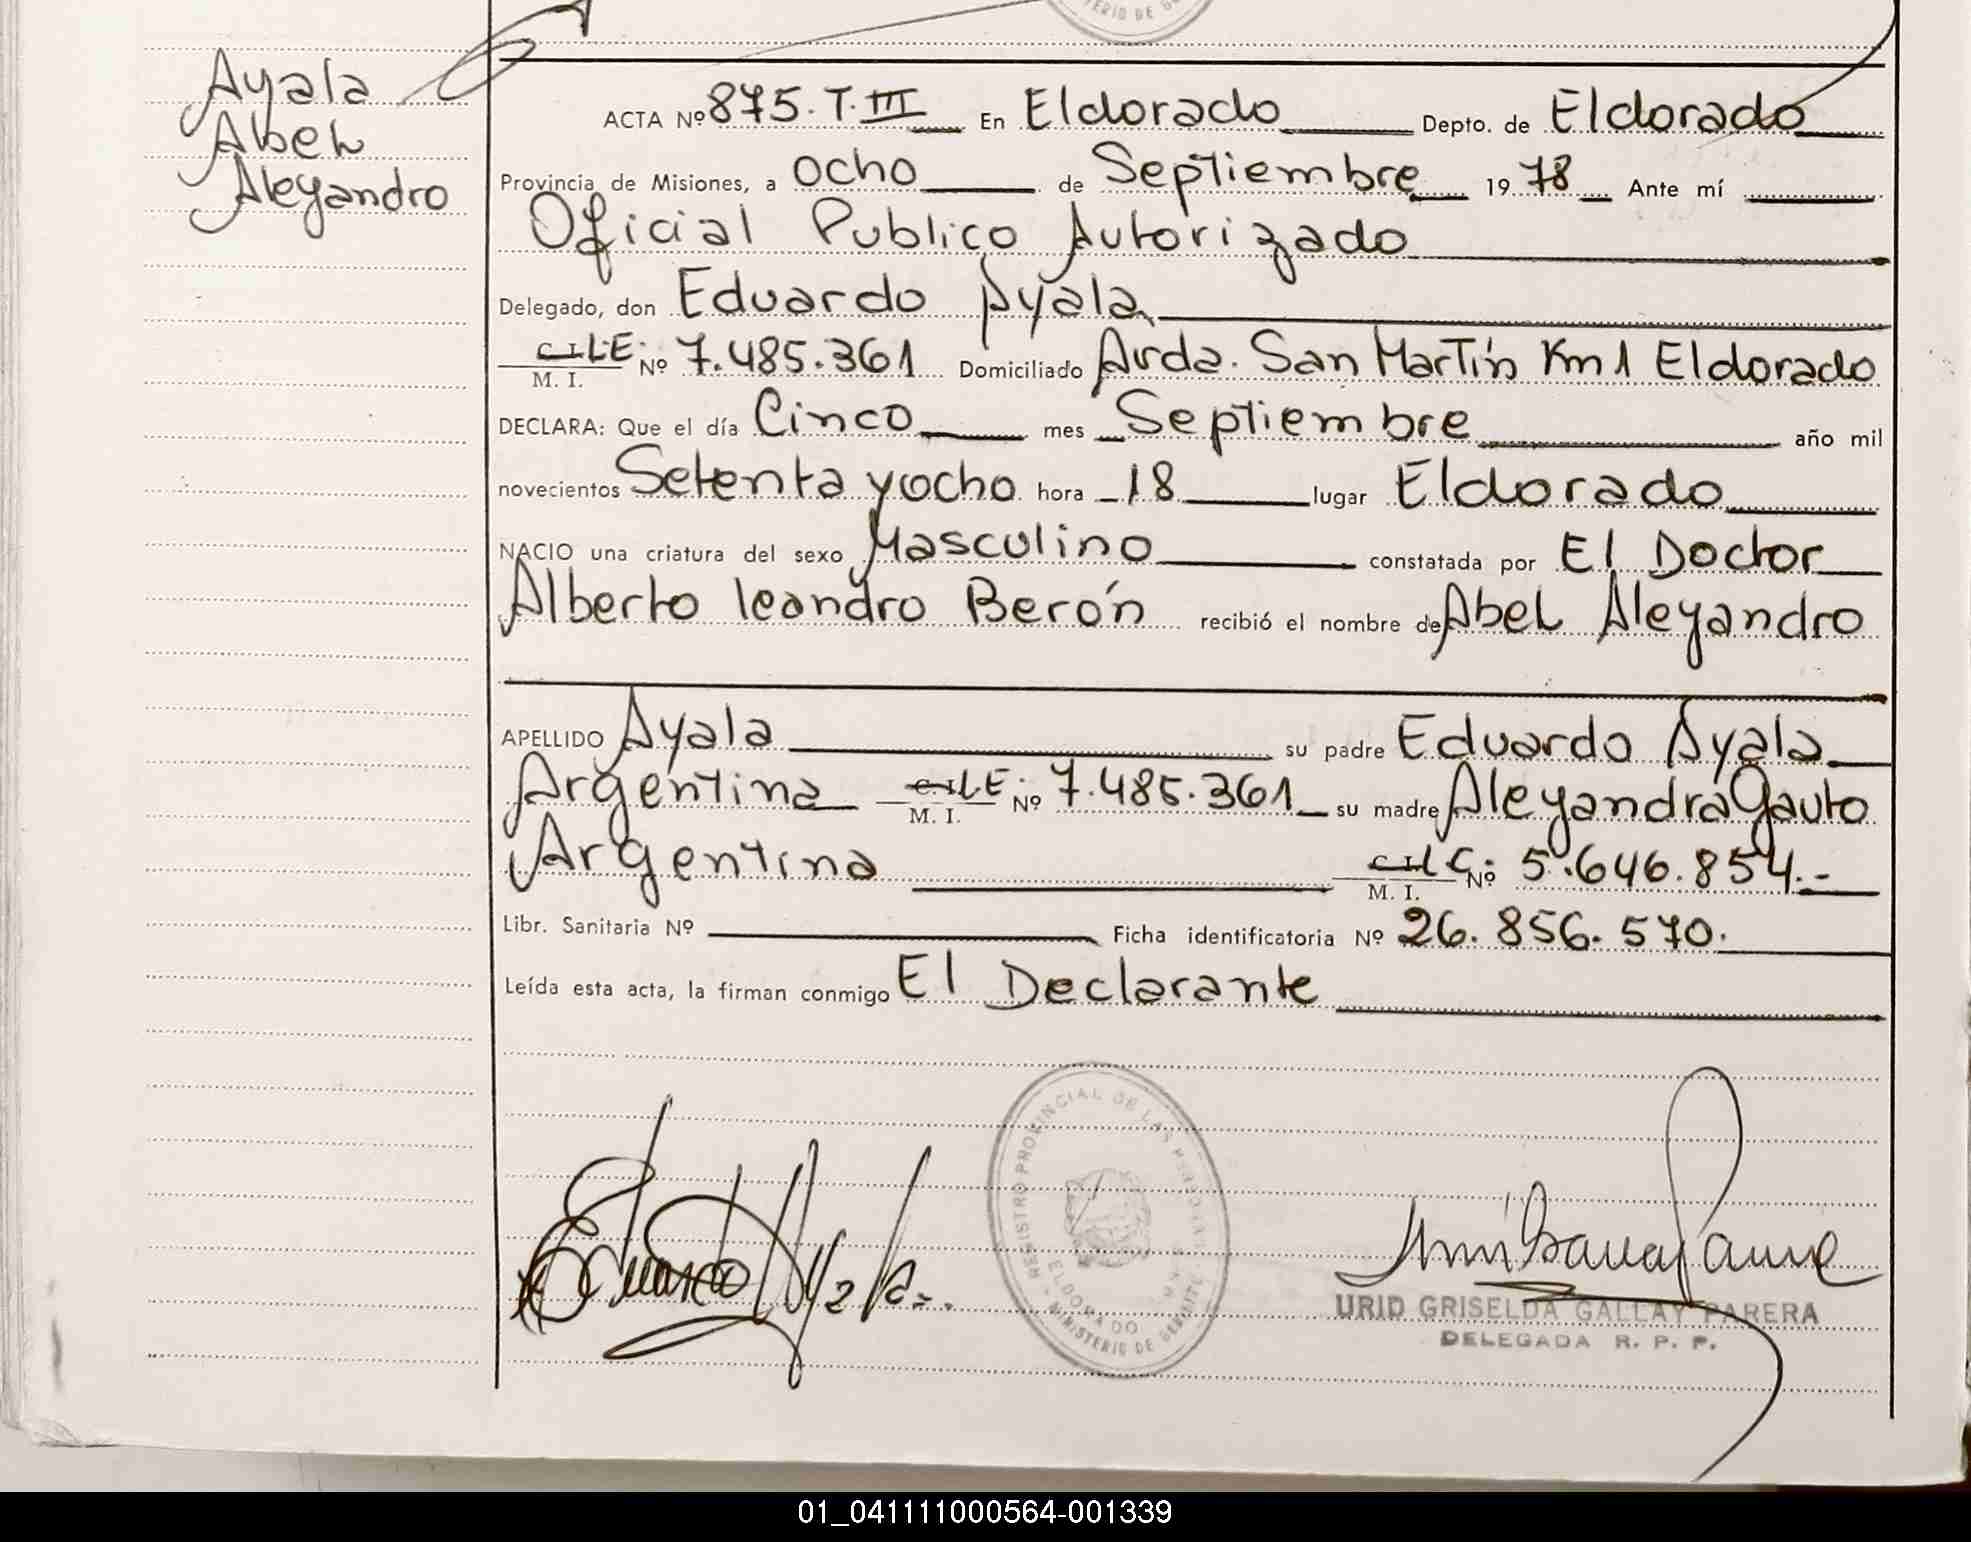 Ayala
Abel
Aleyandro
ACTA Nº 875. T. III En Eldorado Depto. de Eldorado
Provincia de Misiones, a ocho de Septiembre 19 78 Ante mí
Oficial Publico Autorizado
Delegado, don Eduardo Ayala
C.I.L.E. M. I. Nº 7.485.361 Domiciliado Avda. San Martín Km 1 Eldorado
DECLARA: Que el día Cinco mes Septiembre año mil
novecientos Setenta y ocho hora 18 lugar Eldorado
NACIO una criatura del sexo Masculino constatada por El Doctor
Alberto leandro Berón recibió el nombre de Abel Aleyandro
APELLIDO Ayala su padre Eduardo Ayala
Argentina C.I.L.E. M. I. Nº 7.485.361 su madre Aleyandra Gauto
Argentina C.I.L.C. M. I. Nº 5.646.854.-
Libr. Sanitaria Nº Ficha identificatoria Nº 26.856.570.
Leída esta acta, la firman conmigo El Declarante
REGISTRO PROVINCIAL DE LAS PERSONAS
ELDORADO
MINISTERIO DE GOBIERNO
Eduardo Ayala
URID GRISELDA GALLAY PARERA
DELEGADA R. P. P.
01_041111000564-001339